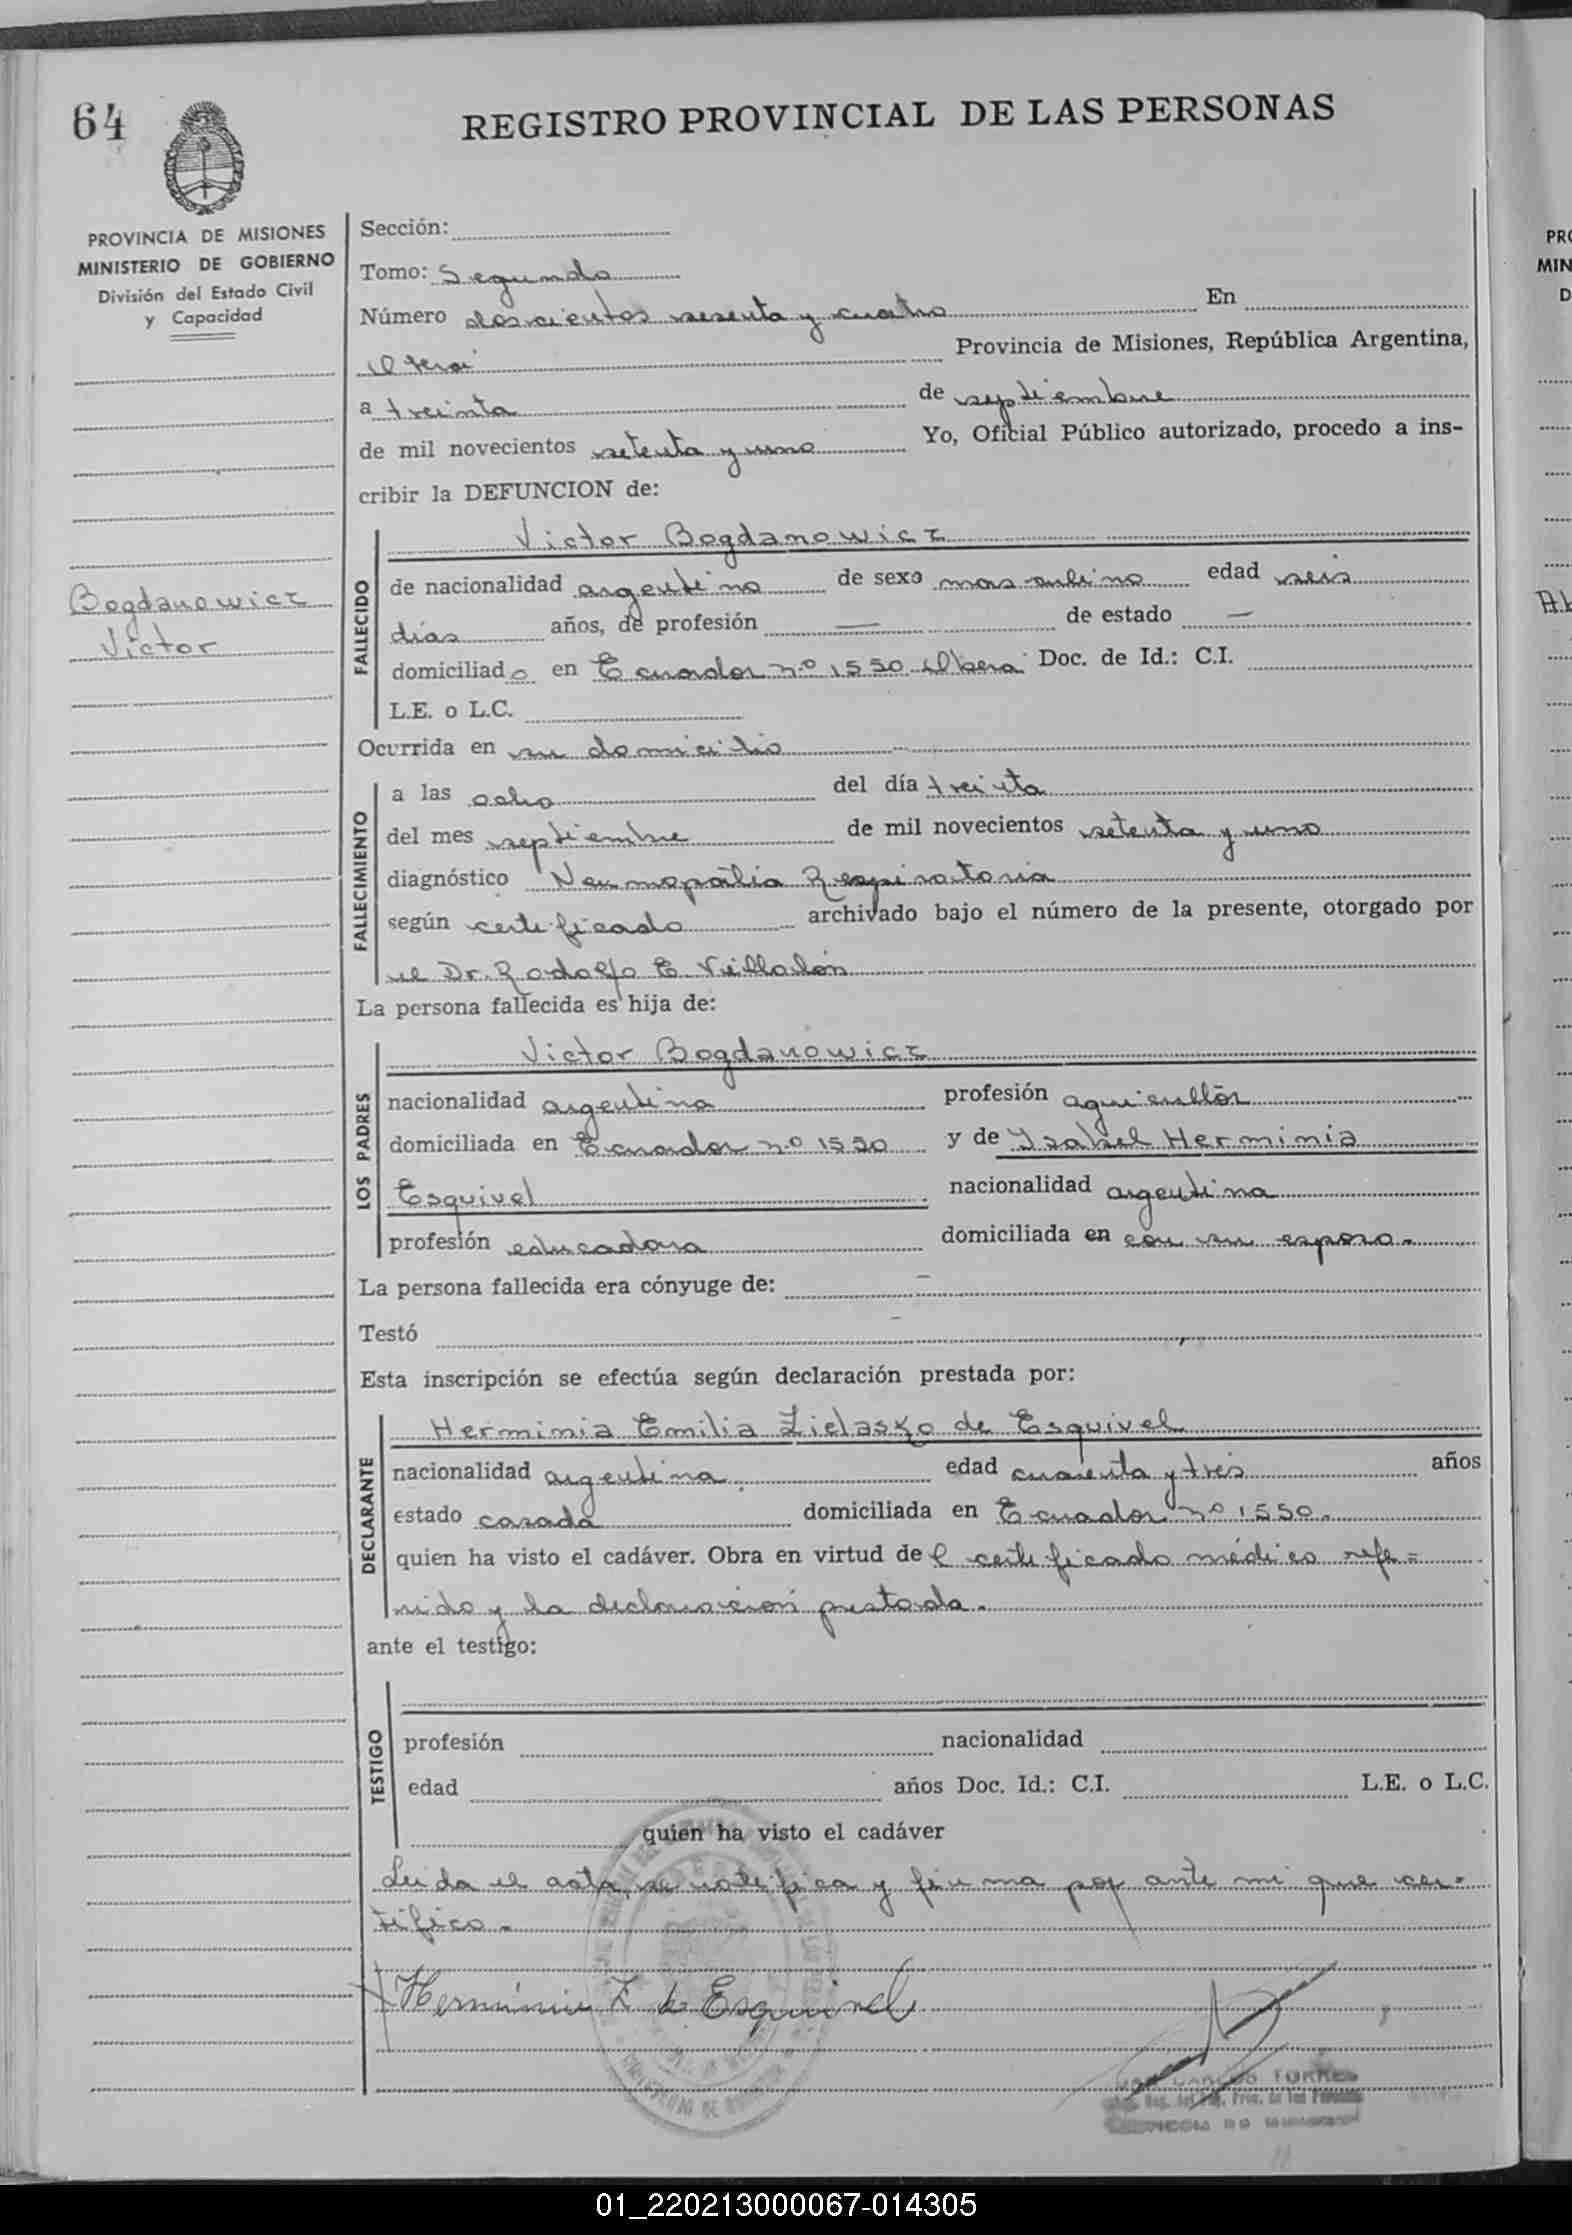 64
REGISTRO PROVINCIAL DE LAS PERSONAS
PROVINCIA DE MISIONES
MINISTERIO DE GOBIERNO
División del Estado Civil
y Capacidad
Bogdanowicz
Victor
Sección:
Tomo: Segundo
Número doscientos sesenta y cuatro En
Oberá Provincia de Misiones, República Argentina,
a treinta de septiembre
de mil novecientos setenta y uno Yo, Oficial Público autorizado, procedo a ins-
cribir la DEFUNCION de:
Victor Bogdanowicz
FALLECIDO
de nacionalidad argentino de sexo masculino edad seis
días años, de profesión — de estado —
domiciliado en Ecuador nº 1550 Oberá Doc. de Id.: C.I.
L.E. o L.C.
Ocurrida en su domicilio
FALLECIMIENTO
a las ocho del día treinta
del mes septiembre de mil novecientos setenta y uno
diagnóstico Neumopatía Respiratoria
según certificado archivado bajo el número de la presente, otorgado por
el Dr. Rodolfo E. Villalón
La persona fallecida es hija de:
LOS PADRES
Victor Bogdanowicz
nacionalidad argentina profesión agricultor
domiciliada en Ecuador nº 1550 y de Ysabel Herminia
Esquivel nacionalidad argentina
profesión educadora domiciliada en con su esposo.
La persona fallecida era cónyuge de: —
Testó —
Esta inscripción se efectúa según declaración prestada por:
DECLARANTE
Herminia Emilia Zielasko de Esquivel
nacionalidad argentina edad cuarenta y tres años
estado casada domiciliada en Ecuador nº 1550.
quien ha visto el cadáver. Obra en virtud del certificado médico refe=
rido y la declaración prestada.
ante el testigo:
TESTIGO
profesión nacionalidad
edad años Doc. Id.: C.I. L.E. o L.C.
quien ha visto el cadáver
Leida el acta, se notifica y firma por ante mi que cer-
tifico.
Herminia Z de Esquivel
TORRES
PRO
MIN
D
01_220213000067-014305